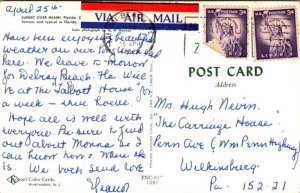 April 25th
SUNSET OVER MIAMI, Florida
VIA AIR MAIL
Have been enjoying beautiful
weather on our long week end
here. We leave to-morrow
for Delray Beach. We will
be at The Talbott House for
a week - then home.
Hope all is well with
everyone. Be sure to find
out about Monna so I
can know how & where she
is. We both send love
POST CARD
Address
Mr. Hugh Nevin,
"The Carriage House"
Penn Ave. (Wm Penn Highway)
Wilkinsburg
Pa. 152-21
Color Cards